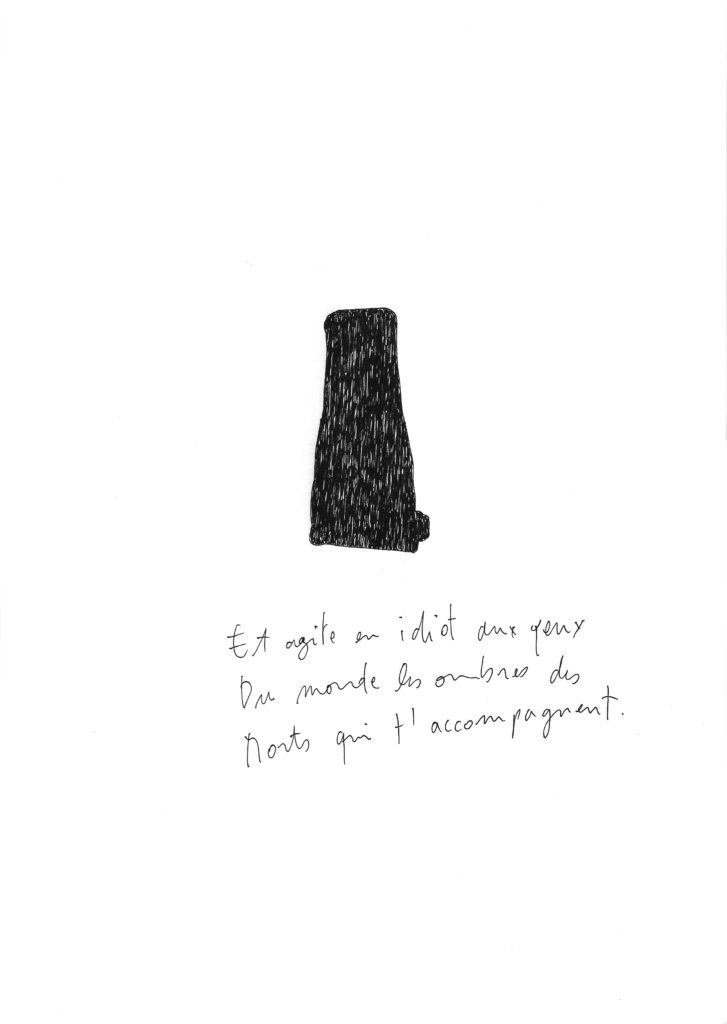 Et agite en idiot aux yeux
Du monde les ombres des
Morts qui t'accompagnent.